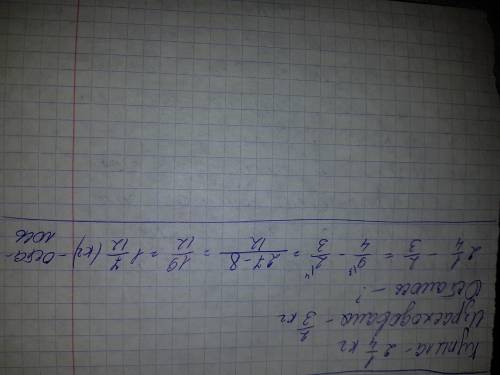 Купила - 2 1/4 кг
Израсходовала - 2/3 кг
Осталось - ?
2 1/4 - 2/3 = 9/4 - 2/3 = 27-8/12 = 19/12 = 1 7/12 (кг) - оста-
лось